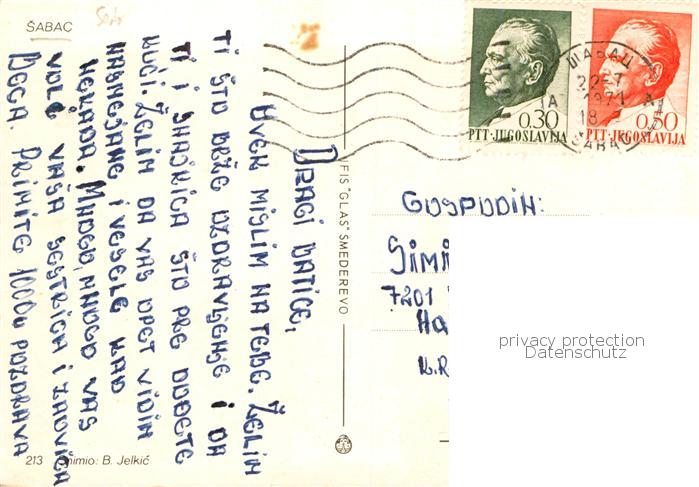 ŠABAC
DRAGI BATICE,
UVEK MISLIM NA TEBE. ŽELIM
TI ŠTO BRŽE OZDRAVLJENJE I DA
TI I SNAJKICA ŠTO PRE DOĐETE
KUĆI. ŽELIM DA VAS OPET VIDIM
NASMEJANE I VESELE KAO
NEKADA. MNOGO, MNOGO VAS
VOLE VAŠA SESTRICA I ZAOVICA
BECA. PRIMITE 1000 POZDRAVA
213 Snimio: B. Jelkić
FIS "GLAS" SMEDEREVO
0.30
PTT·JUGOSLAVIJA
0.50
PTT·JUGOSLAVIJA
ШАБАЦ
22-7
1971
18
ŠABAC
GOSPODIN:
SIMI
7201
HA
privacy protection
Datenschutz